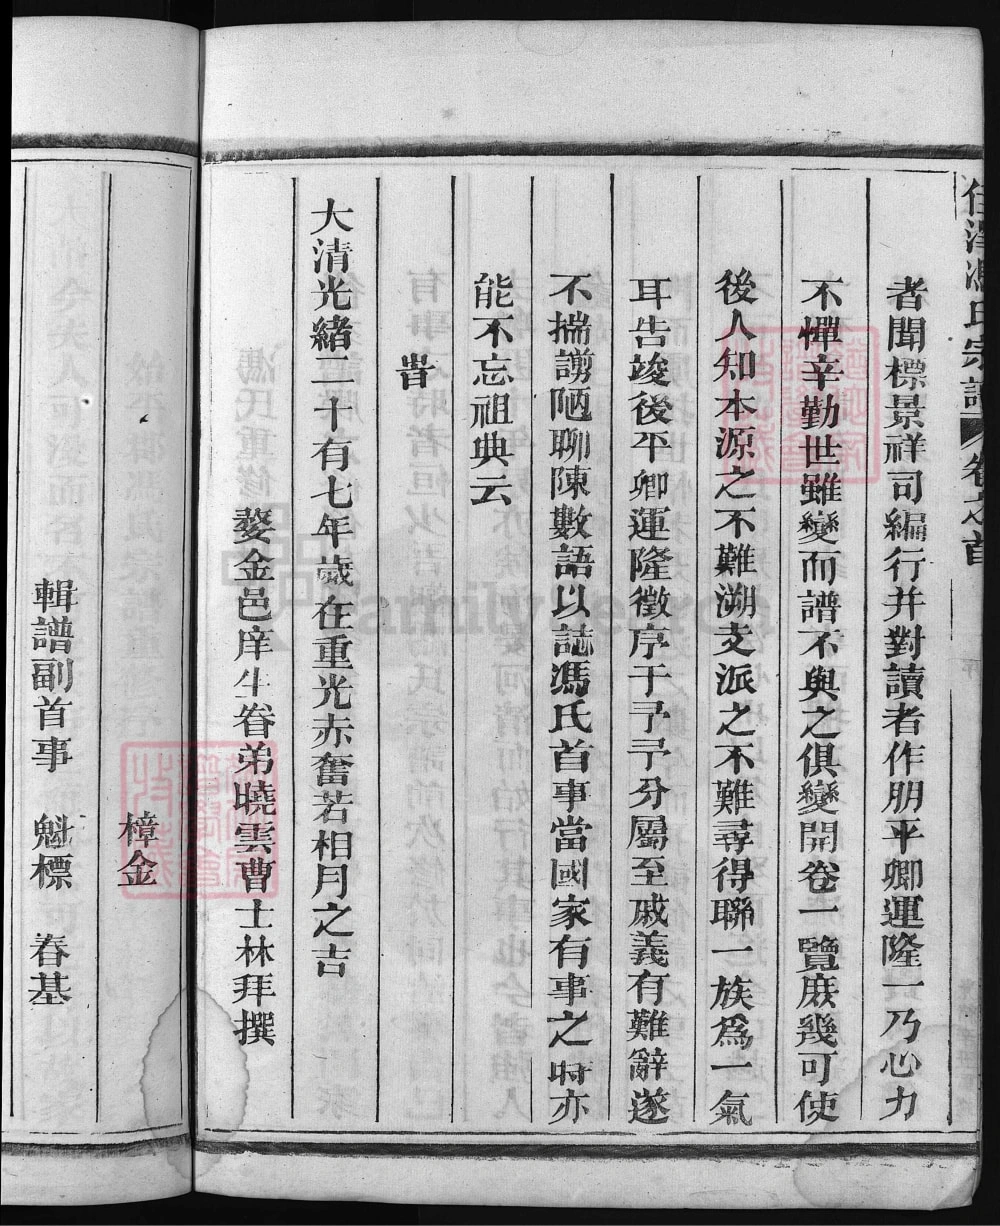 任澤馮氏宗譜 卷之首
者聞標景祥司編行并對讀者作朋平卿運隆一乃心力
不憚辛勤世雖變而譜不與之俱變開卷一覽庶幾可使
後人知本源之不難溯支派之不難尋得聯一族為一氣
耳告竣後平卿運隆徵序于予予分屬至戚義有難辭遂
不揣謭陋聊陳數語以誌馮氏首事當國家有事之時亦
能不忘祖典云
旹
大清光緒二十有七年歲在重光赤奮若相月之吉
婺金邑庠生眷弟曉雲曹士林拜撰
樟金
輯譜副首事 魁標 春基
FamilySearch